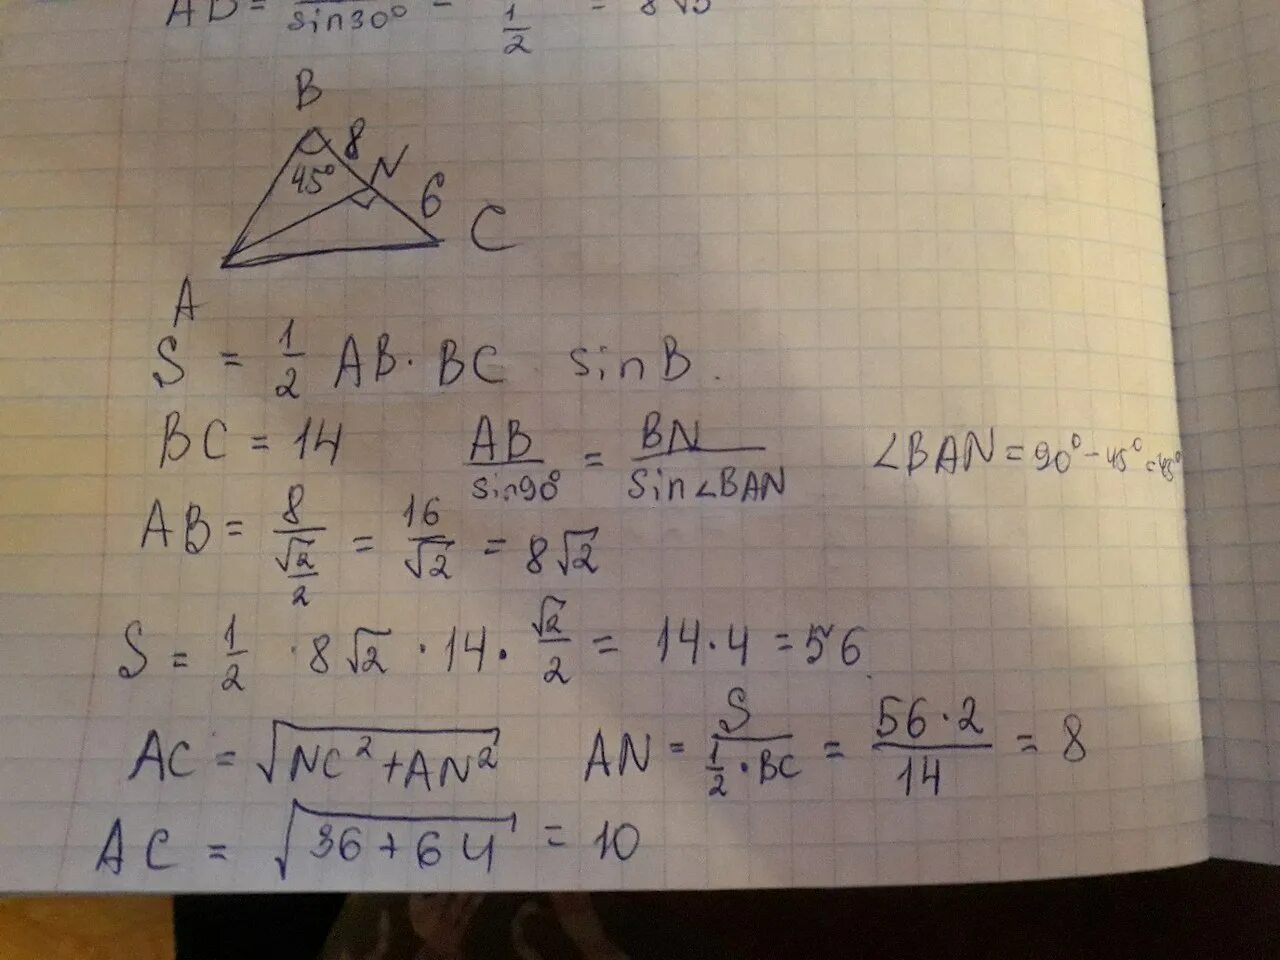 sin30° = 1/2 =
B
8
45°
N
6
C
A
S = 1/2 AB · BC sinB.
BC = 14 AB/sin90° = BN/sin∠BAN ∠BAN = 90° - 45° = 45°
AB = 8/(√2/2) = 16/√2 = 8√2
S = 1/2 · 8√2 · 14 · √2/2 = 14 · 4 = 56
AC = √(NC² + AN²) AN = S/(1/2 · BC) = 56 · 2/14 = 8
AC = √(36 + 64) = 10